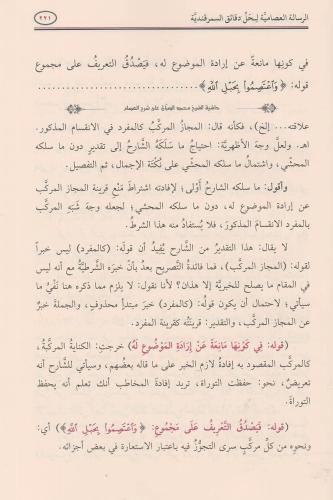 الرسالة العصاميَّة لِحَلِّ دقائق السمرقنديَّة
٢٢١
في كونِها مانعةً عن إرادة الموضوع له، فيَصْدُقُ التعريفُ على مجموع
قوله: ﴿ وَٱعْتَصِمُوا۟ بِحَبْلِ ٱللَّهِ ﴾.......................................................
حاشية الشيخ محمد الصبَّان على شرح العصام
علاقته... إلخ)، فكأنه قال: المجازُ المركَّبُ كالمفرد في الانقسام المذكور.
اهـ. ولعلَّ وجهَ الأظهريَّة: احتياجُ ما سَلَكَهُ الشَّارحُ إلى تقديرٍ دون ما سلكه
المحشّي، واشتمالُ ما سلكه المحشي على نُكْتَةِ الإجمال، ثم التفصيل.
وأقول: ما سلكه الشارحُ أَوْلَى؛ لإفادته اشتراطَ مَنْعِ قرينة المجاز المركَّب
عن إرادة الموضوع له، دون ما سلكه المحشي؛ لجعله وجهَ شَبَهِ المركَّب
بالمفرد الانقسام المذكورَ، فلا يُستفادُ منه هذا الشرطُ.
لا يقال: هذا التقديرُ من الشَّارح يُفيدُ أن قولَه: (كالمفرد) ليس خبراً
لقوله: (المجاز المركَّب)، فما فائدةُ التصريح بعدُ بأنَّ خبرَه الشَّرطيَّةُ مع أنه ليس
في المقام ما يصلح للخبريَّة إلا هذا؟ لأنا نقول: لا يلزم مما ذكره هنا نَفْيُ ما
سيأتي؛ لاحتمال أن يكون قولُه: (كالمفرد) خبرَ مبتدأٍ محذوفٍ، والجملة خبرُ
المجاز المركَّب، والتقدير: قرينتُه كقرينة المفرد.
(قوله: فِي كَوْنِهَا مَانِعَةً عَنْ إِرَادَةِ المَوْضُوعِ لَهُ) خرجتِ: الكنايةُ المركَّبة،
كالمركَّب المقصود به إفادةُ لازم الخبر على ما قاله بعضُهم، وسيأتي للشَّارح أنه
تعريضٌ، نحو: حفظت التوراة، تريد إفادةَ المخاطب أنك تعلم أنه يحفظ
التوراةَ.
(قوله: فَيَصْدُقُ التَّعْرِيفُ عَلَى مَجْمُوعِ: ﴿ وَٱعْتَصِمُوا۟ بِحَبْلِ ٱللَّهِ ﴾) أي:
ونحوِه من كلِّ مركَّبٍ سرى التجوُّزُ فيه باعتبار الاستعارة في بعض أجزائه.